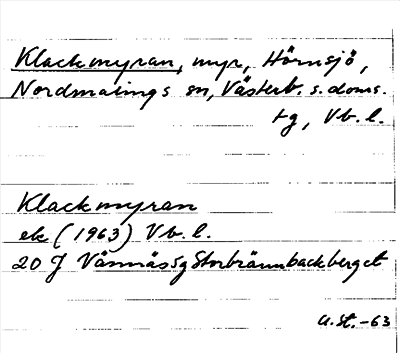 Klackmyran, myr, Hörnsjö,
Nordmalings sn, Västerb. s. doms.
tg, Vb. l.
Klackmyran
ek (1963) Vb. l.
20 J Vännäs 5g Storbrännbackberget
a. st. -63